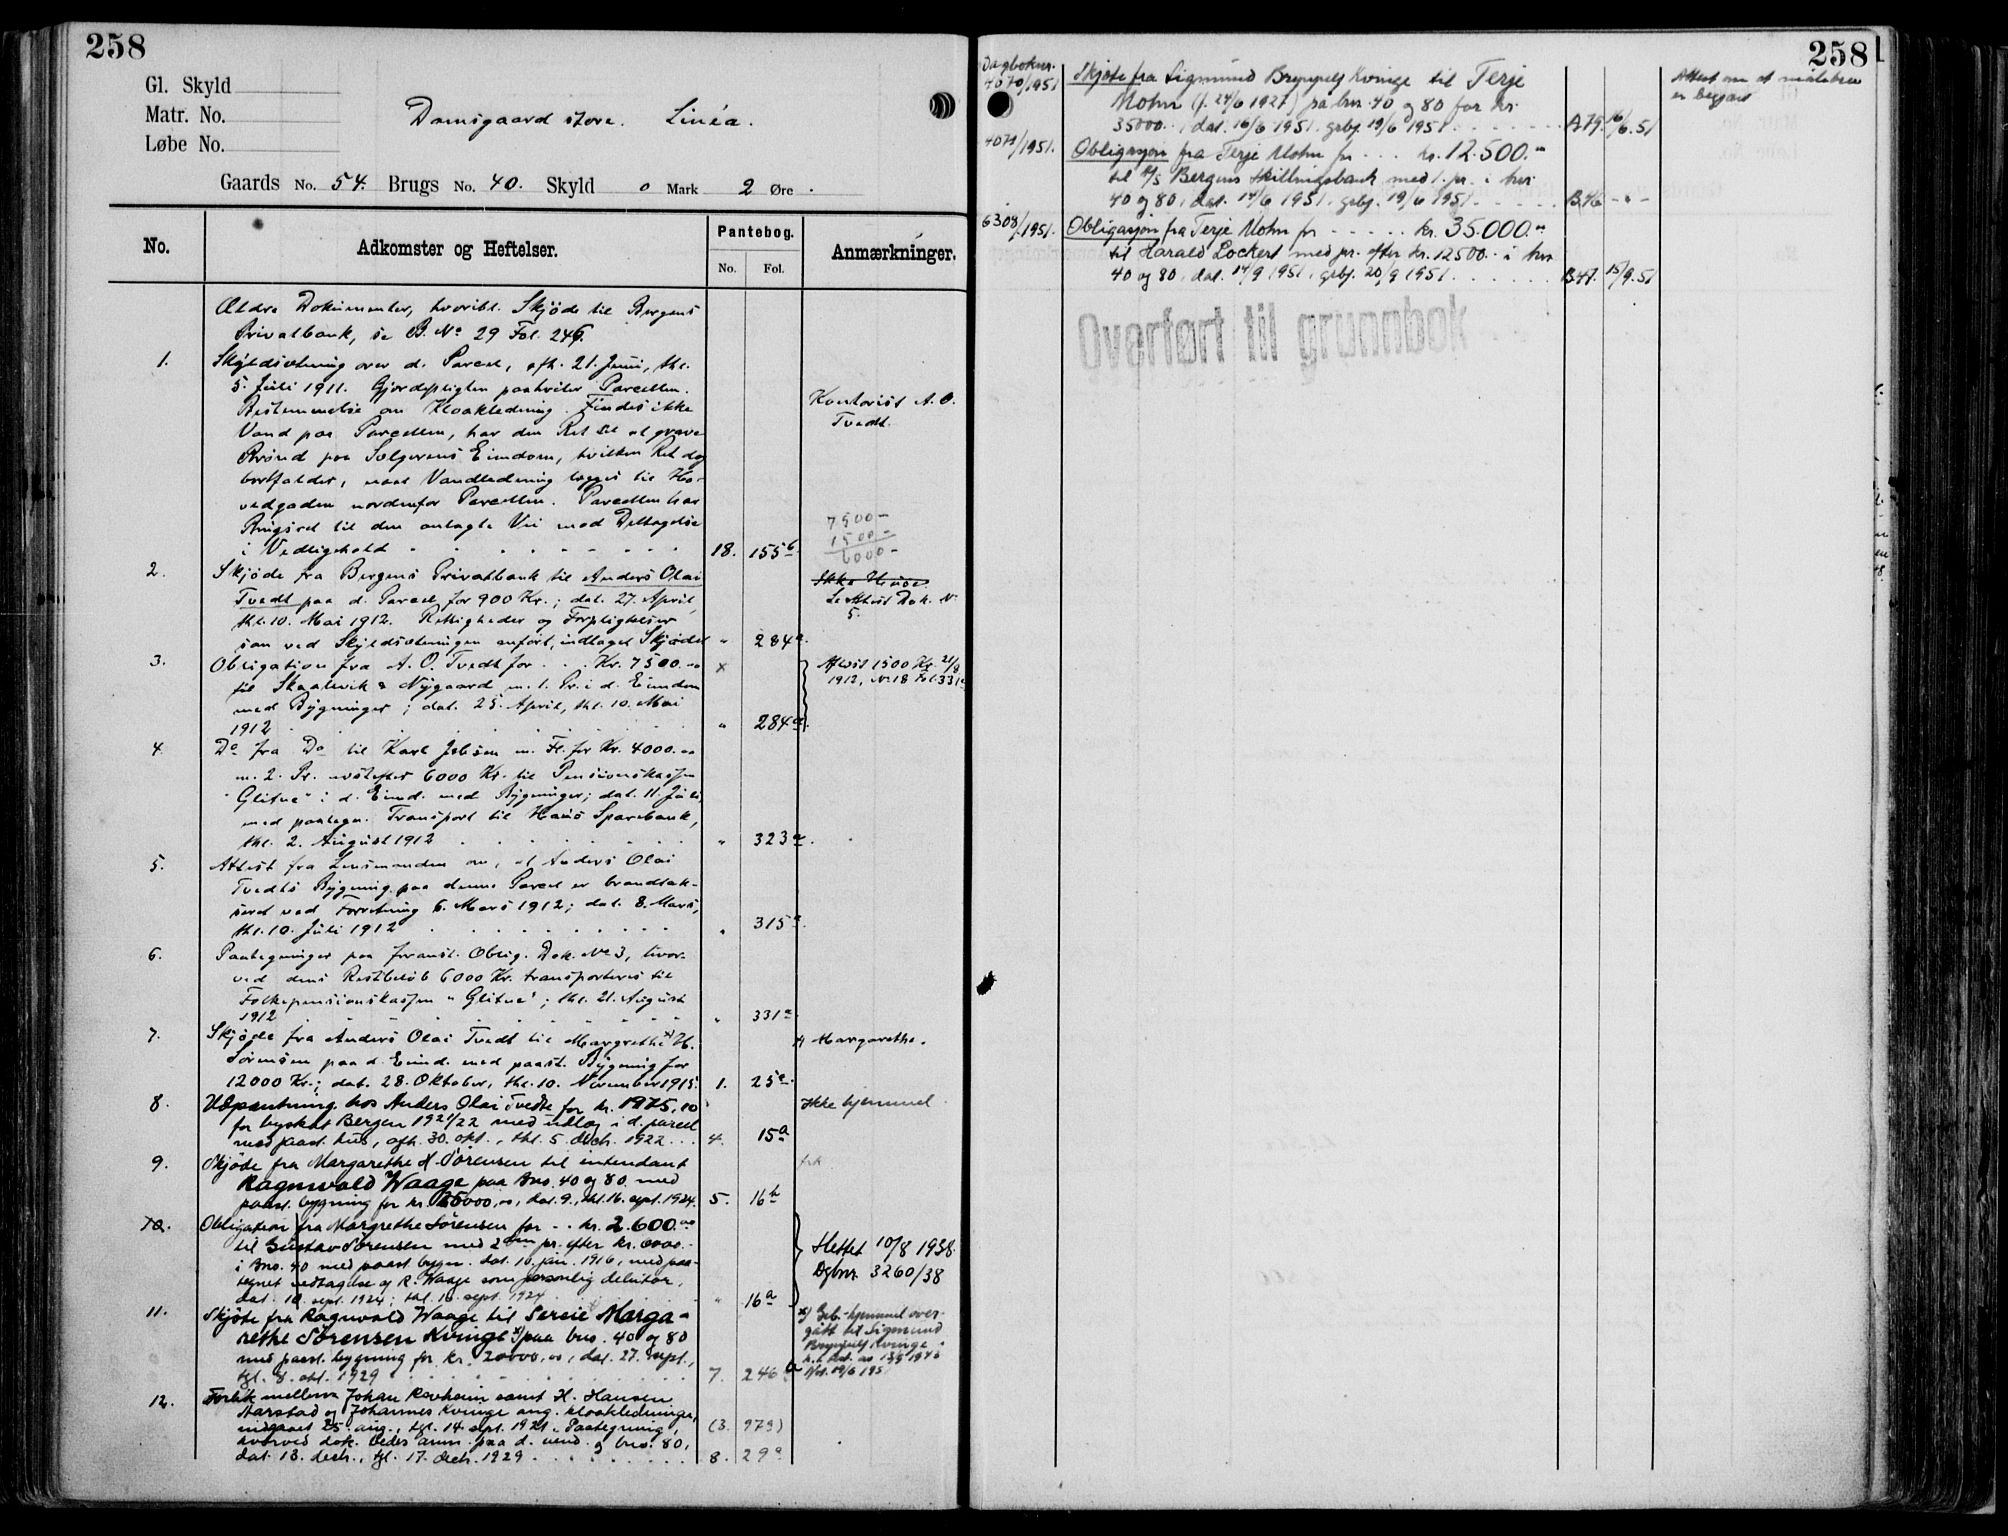 258
Gl. Skyld
Matr. No.
Løbe No.
Damsgaard store. Linéa.
Gaards No. 54. Brugs No. 40. Skyld 0 Mark 2 Øre.
No.
Adkomster og Heftelser.
Pantebog.
No. Fol.
Anmærkninger.
Ældre Dokumenter, hvoribl. Skjøde til Bergens
Privatbank, se B. No 29 Fol. 246.
1. Skyldsætning over d. Parcel, afh. 21. Juni, thl.
5. Juli 1911. Gjerdepligten paahviler Parcellen.
Bestemmelse om Kloakledning. Findes ikke
Vand paa Parcellen, har den Ret til at grave
Brønd paa Sælgerens Eiendom, hvilken Ret dog
bortfalder, naar Vandledning lægges til Ho-
vedgaden nordenfor Parcellen. Parcellen har
Brugsret til den anlagte Vei mod Deltagelse
i Vedligehold 18. 155b
Kontorist A. O.
Tvedt.
7500 —
1500 —
6000 —
2. Skjøde fra Bergens Privatbank til Anders Olai
Tvedt paa d. Parcel for 900 Kr.; dat. 27. April,
thl. 10. Mai 1912. Rettigheder og Forpligtelser
som ved Skyldsætningen anført, indtaget Skjødet " 284a.
Ikke Huse.
Se Attest Dok. No
5.
3. Obligation fra A. O. Tvedt for . . . Kr. 7500.00 x
til Skaalevik & Nygaard m. 1. Pr. i d. Eiendom
med Bygninger; dat. 25. April, thl. 10. Mai
1912 " 284a.
Afløst 1500 Kr. 21/8
1912, No 18 Fol. 331a
4. Do fra Do til Karl Jebsen m. Fl. for Kr. 4000.00
m. 2. Pr. næstefter 6000 Kr. til Pensionskassen
"Glitne" i d. Eiend. med Bygninger; dat. 11. Juli,
med paategn. Transport til Haus Sparebank,
thl. 2. August 1912 " 323a.
5. Attest fra Lensmanden om, at Anders Olai
Tvedts Bygning paa denne Parcel er brandtak-
seret ved Forretning 6. Mars 1912; dat. 8. Mars,
thl. 10. Juli 1912 " 315a.
6. Paategninger paa foranst. Oblig. Dok. No 3, hvor-
ved dens Restbeløb 6000 Kr. transporteres til
Folkepensionskassen "Glitne"; thl. 21. August
1912 " 331a.
7. Skjøde fra Anders Olai Tvedt til Margrethe x) H.
Sørensen paa d. Eiend. med paast. Bygning for
12000 Kr.; dat. 28. Oktober, thl. 10. November 1915. 1. 25a.
x) Margarethe.
8. Udpantning hos Anders Olai Tvedt for kr. 1975,10
for byskat Bergen 1921/22 med udlæg i d. parcel
med paast. hus, afh. 30. okt., thl. 5. decb. 1922 . . . 4. 15a
Ikke hjemmel.
9. Skjøde fra Margarethe H. Sørensen til intendant
Ragnvald Waage paa Bno. 40 og 80 med
paast. bygning for kr. 25000,00, dat. 9., thl. 16. sept. 1924. 5. 16b
frk
10. Obligation fra Margrethe Sørensen for . . kr. 2.600.00
til Gustav Sørensen med 2den pr. efter kr. 6000.-
i Bno. 40 med paast. bygn. dat. 10. jan. 1916, med paa-
tegnet vedtagelse af R. Waage som personlig debitor,
dat. 10. sept. 1924; thl. 16. sept. 1924 " 16a
Slettet 10/8 1938.
Dgbnr. 3260/38
11. Skjøte fra Ragnvald Waage til Sereie Marga-
rethe Sørensen Kvinge x) paa bno. 40 og 80
med paast. bygning for kr. 20000,00, dat. 27. sept.,
tgl. 8. okt. 1929 7. 246
x) Grb.-hjemmel over-
gått til Sigmund
Brynjulf Kvinge
12. Forlik mellem Johan Ravheim samt H. Hansen
Aarstad og Johannes Kvinge ang. kloakledninger,
indgaaet 25. aug., tgl. 14. sept. 1921. Paategning,
hvorved dok. bedes anm. paa d. eiend. og bno. 80,
dat. 13. decb., tgl. 17. decb. 1929
(3. 979)
8. 29a
258
Dagboknr.
4070/1951 Skjøte fra Sigmund Brynjulf Kvinge til Terje
Mohn (f. 24/6 1927) på bnr. 40 og 80 for kr.
35000.-, dat. 16/6 1951, grbf. 19/6 1951. A 79. 16/6.51
Attest om at målebrev
er begjært
4071/1951. Obligasjon fra Terje Mohn for . . . kr. 12.500.00
til A/S Bergens Skillingsbank med 1. pr. i bnr.
40 og 80, dat. 14/6 1951, grbf. 19/6 1951. B.46 — " —
6308/1951. Obligasjon fra Terje Mohn for . . . . . kr. 35.000.00
til Harald Lockert med pr. efter kr. 12500.- i bnr.
40 og 80, dat. 14/9 1951, grbf. 20/9 1951. B.47. 15/9.51
Overført til grunnbok